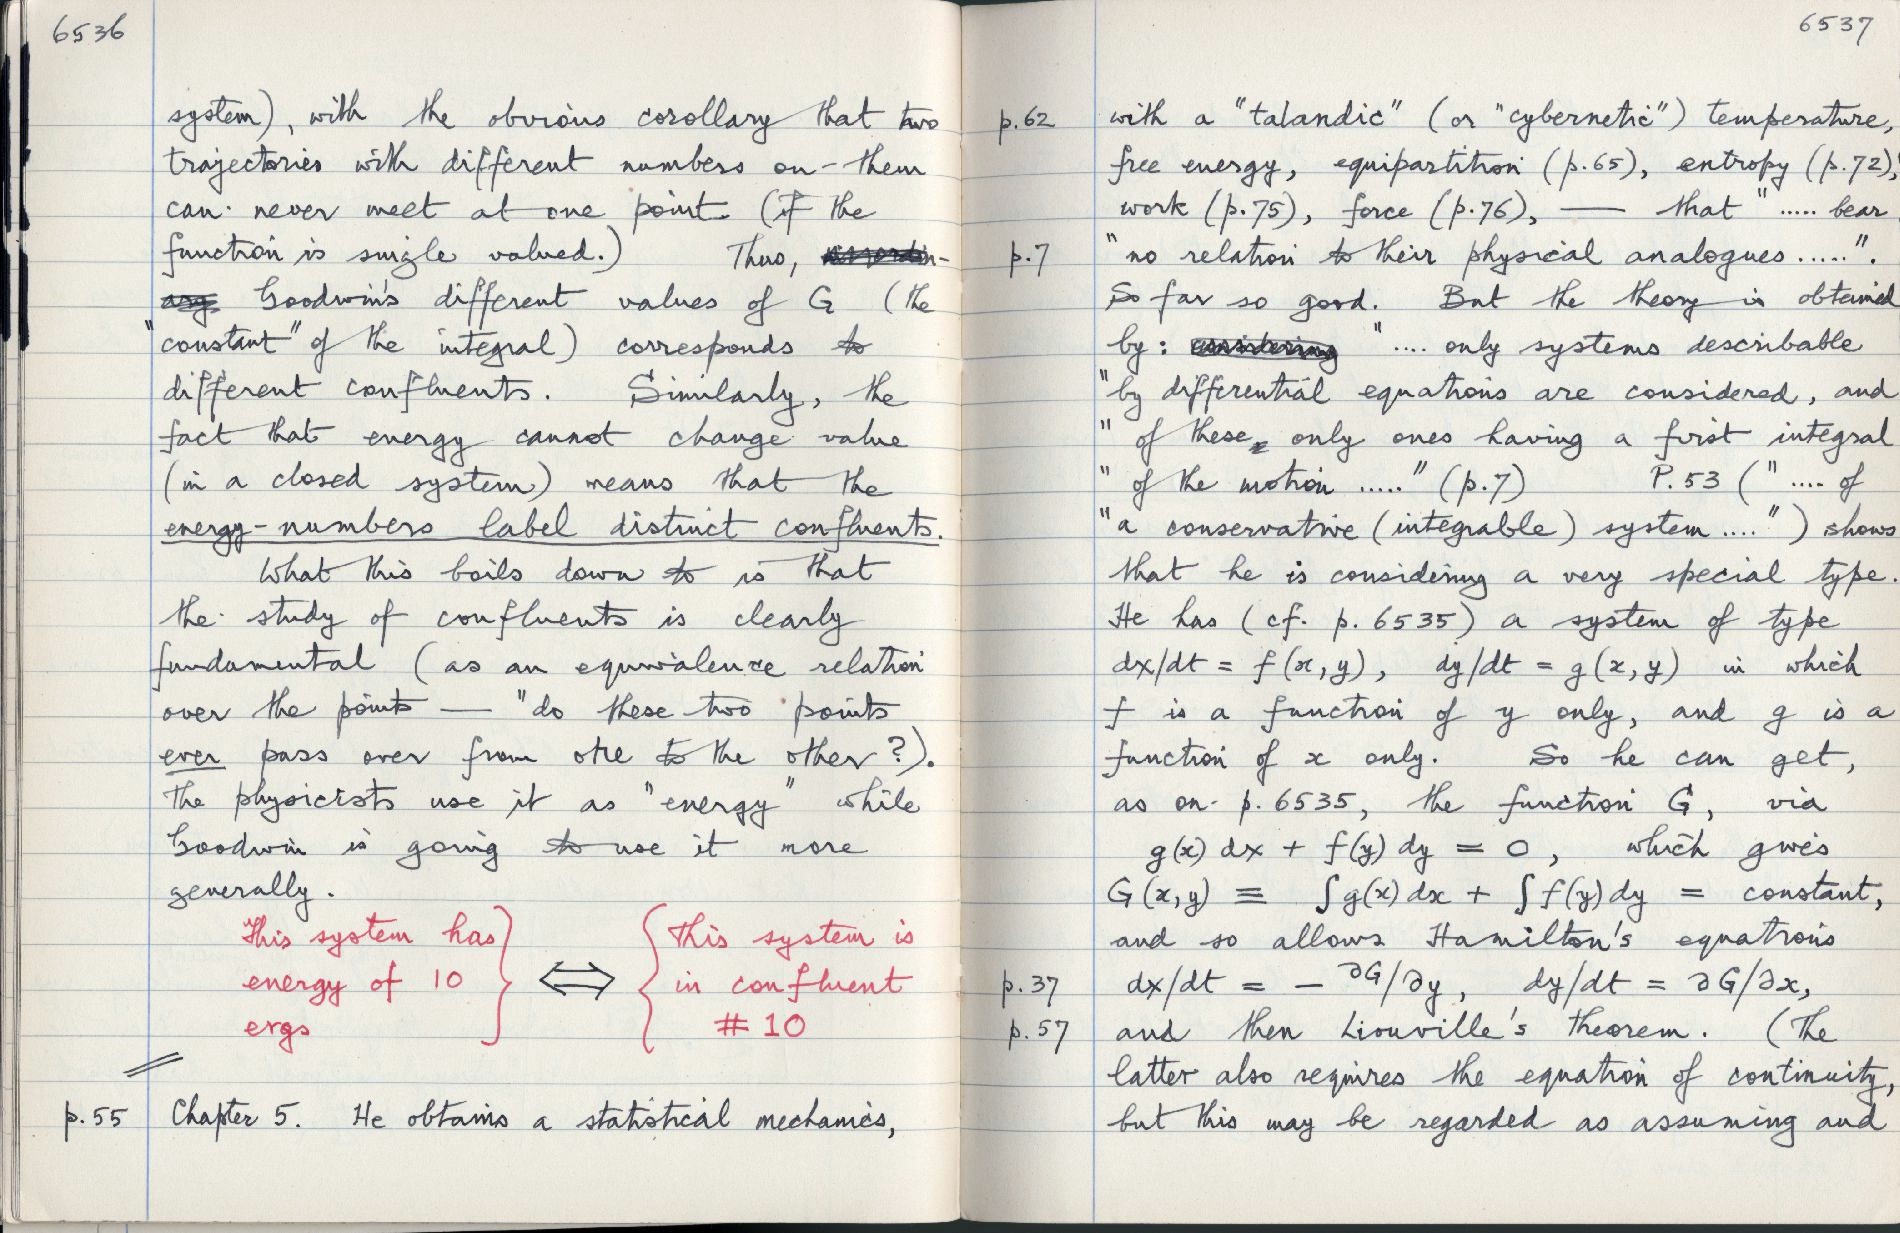 6536
system), with the obvious corollary that two
trajectories with different numbers on them
can never meet at one point (if the
function is single valued.) Thus,
Goodwin's different values of G (the
"constant" of the integral) corresponds to
different confluents. Similarly, the
fact that energy cannot change value
(in a closed system) means that the
energy-numbers label distinct confluents.
What this boils down to is that
the study of confluents is clearly
fundamental (as an equivalence relation
over the points — "do these two points
ever pass over from one to the other?).
The physicists use it as "energy" while
Goodwin is going to use it more
generally.
This system has
energy of 10
ergs
⟺
This system is
in confluent
# 10
p.55 Chapter 5. He obtains a statistical mechanics,
6537
p.62 with a "talandic" (or "cybernetic") temperature,
free energy, equipartition (p.65), entropy (p.72),
work (p.75), force (p.76), — that "..... bear
p.7 "no relation to their physical analogues .....".
So far so good. But the theory is obtained
by: considering ".... only systems describable
"by differential equations are considered, and
" of these, only ones having a first integral
" of the motion ....." (p.7) P.53 (".... of
"a conservative (integrable) system ....") shows
that he is considering a very special type.
He has (cf. p. 6535) a system of type
dx/dt = f(x,y), dy/dt = g(x,y) in which
f is a function of y only, and g is a
function of x only. So he can get,
as on p. 6535, the function G, via
g(x) dx + f(y) dy = 0, which gives
G(x,y) ≡ ∫g(x)dx + ∫f(y)dy = constant,
and so allows Hamilton's equations
p.37 dx/dt = - ∂G/∂y, dy/dt = ∂G/∂x,
p.57 and then Liouville's theorem. (The
latter also requires the equation of continuity,
but this may be regarded as assuming and